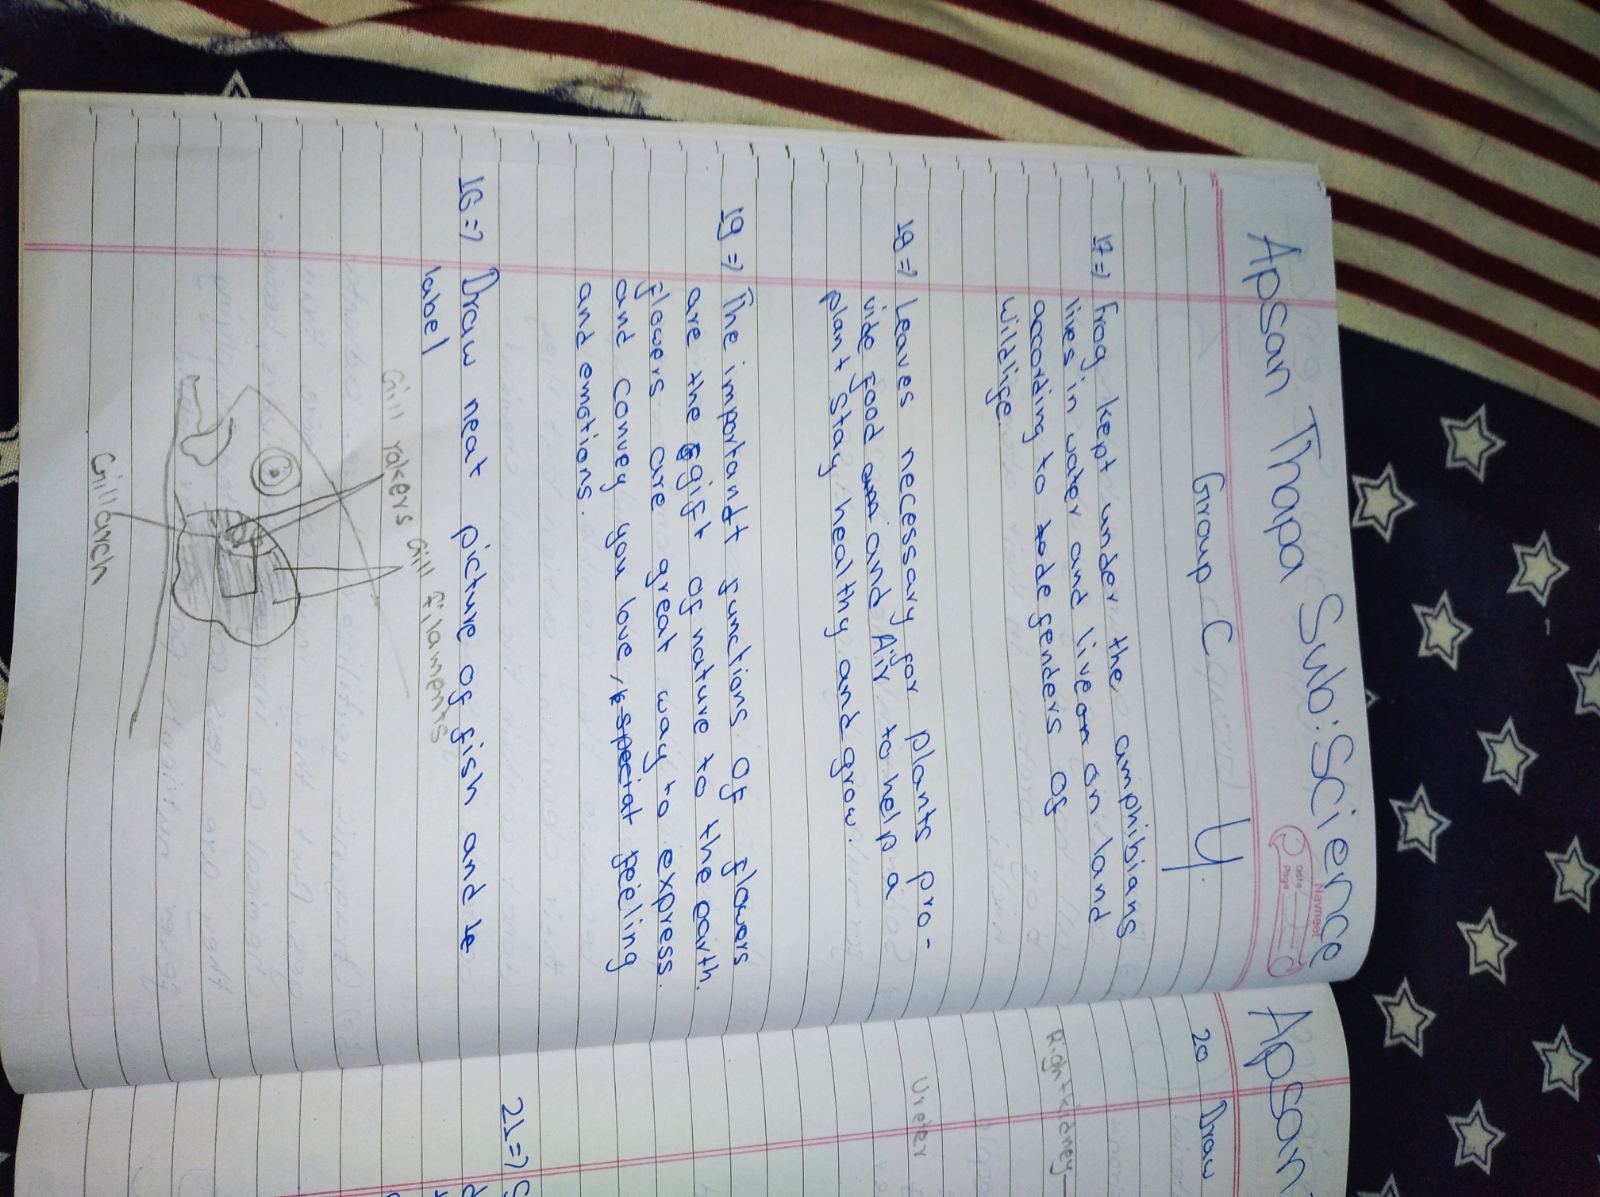 Apsan Thapa Sub: Science
Navneet
Date
Page
Group C
4.
17=> Frog kept under the amphibians
lives in water and live on on land
according to defenders of
wildlife
18=> Leaves necessary for plants pro-
vide food and Air to help a
plant stay healthy and grow.
19=> The important functions of flowers
are the gift of nature to the earth.
flowers are great way to express
and convey you love, feeling
and emotions.
16=> Draw neat picture of fish and
label
Gill rakers Gill filaments
Gill arch
Apsan
20 Draw
Right kidney
Ureter
21=>